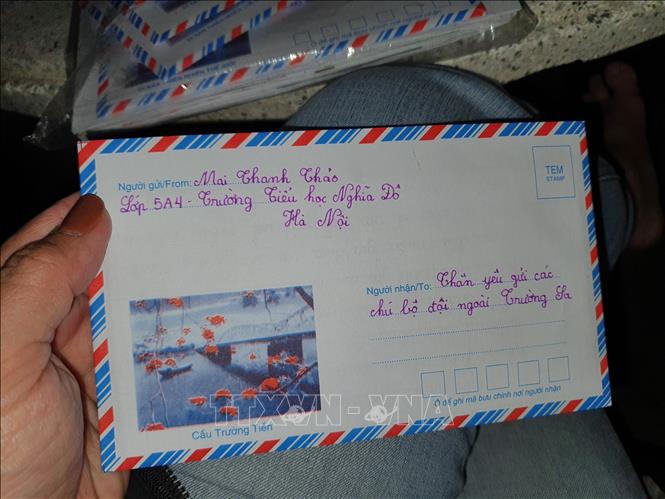 Người gửi/From: Mai Thanh Thảo
Lớp 5A4 - Trường Tiểu học Nghĩa Đô
Hà Nội
TEM
STAMP
Người nhận/To: Thân yêu gửi các
chú bộ đội ngoài Trường Sa
Cầu Trường Tiền
Ô để ghi mã bưu chính nơi người nhận
TTXVN - VNA